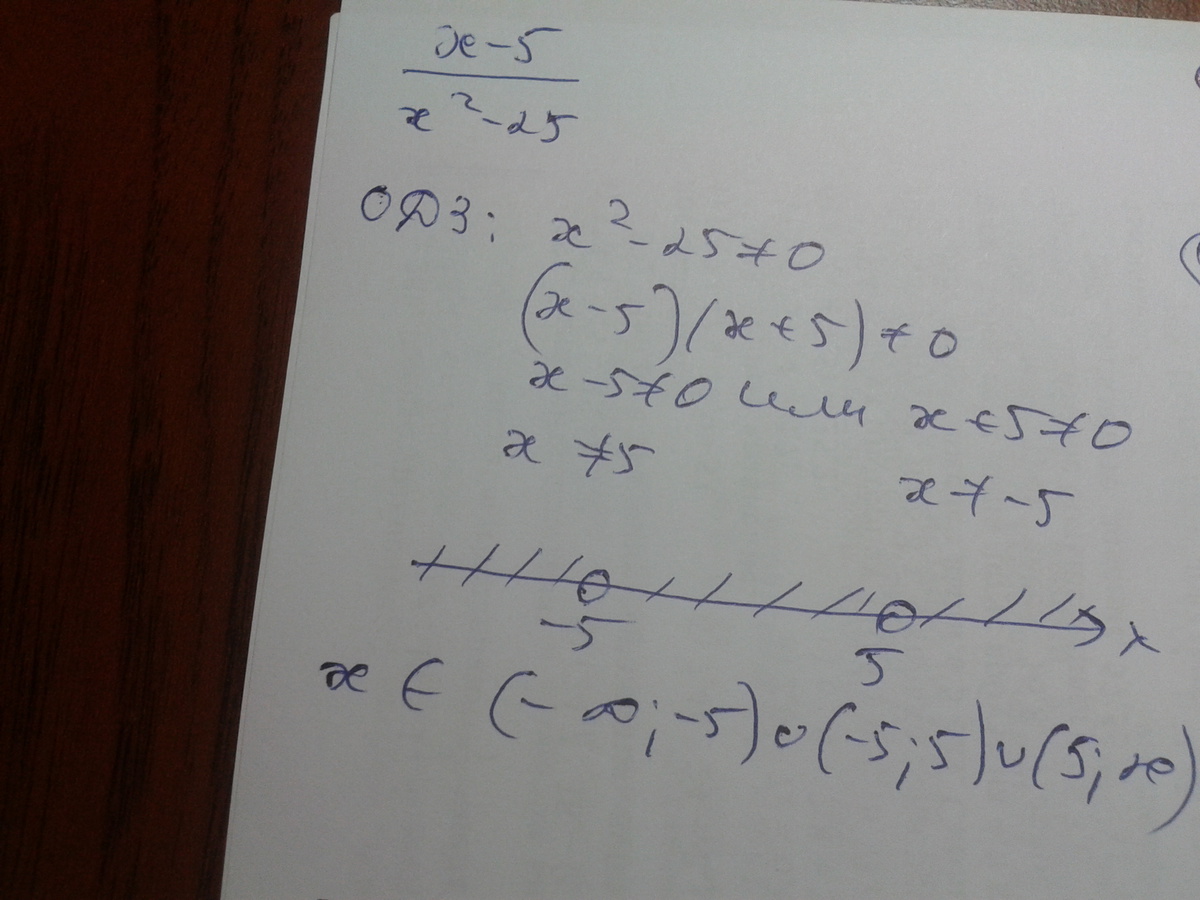 x-5
x²-25
ОДЗ: x²-25≠0
(x-5)(x+5)≠0
x-5≠0 или x+5≠0
x ≠5 x≠-5
-5 5 x
x ∈ (-∞;-5)∪(-5;5)∪(5;∞)